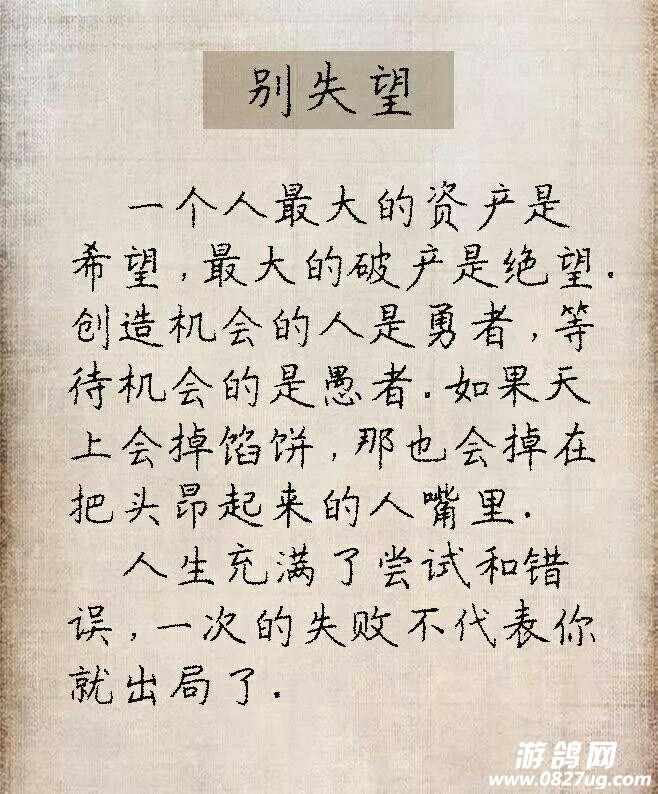 别失望
一个人最大的资产是
希望,最大的破产是绝望.
创造机会的人是勇者,等
待机会的是愚者.如果天
上会掉馅饼,那也会掉在
把头昂起来的人嘴里.
人生充满了尝试和错
误,一次的失败不代表你
就出局了.
游鸽网
www.0827ug.com